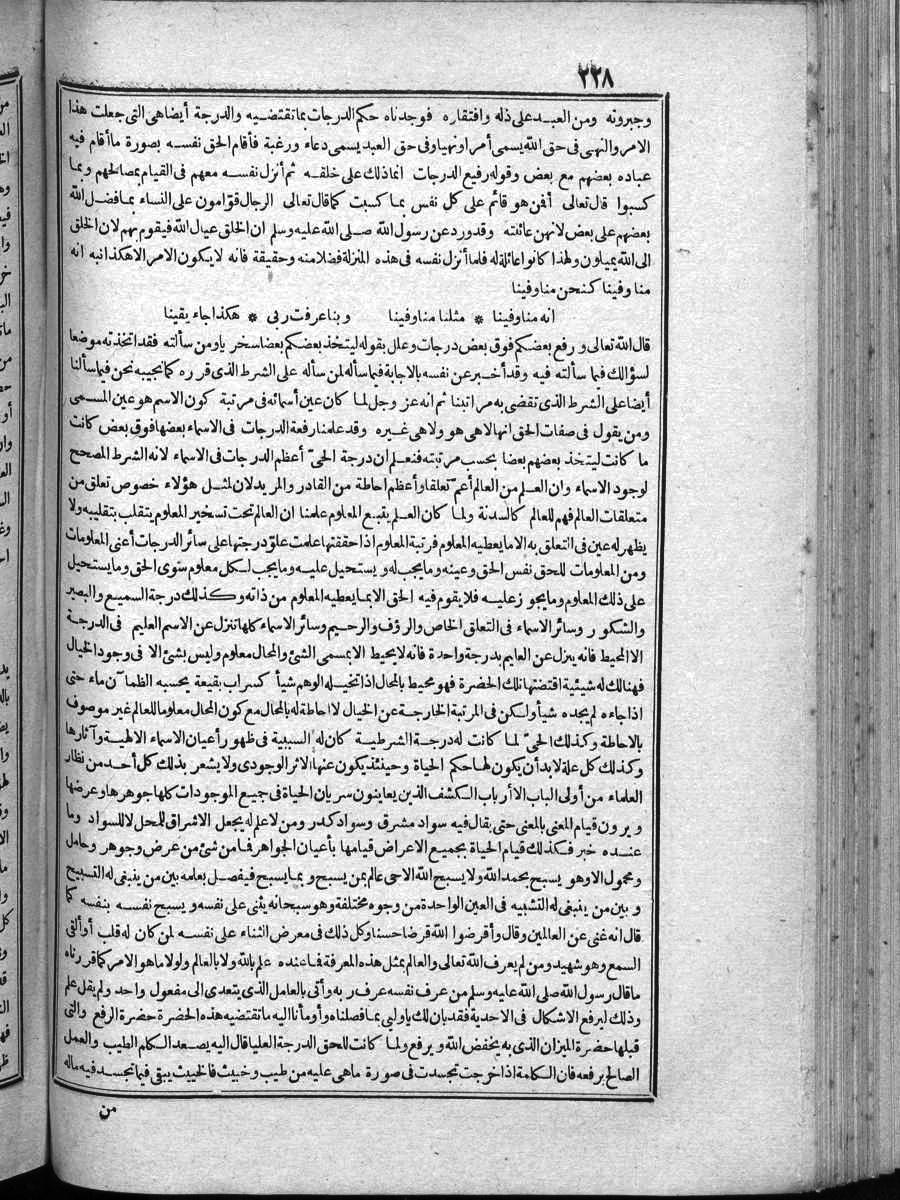 ٢٢٨
وجبروته ومن العبد على ذله وافتقاره فوجدناه حكم الدرجات بما تقتضيه والدرجة أيضا هى التى جعلت هذا
الامر والنهى فى حق الله يسمى أمرا ونهيا وفى حق العبد يسمى دعاء ورغبة فأقام الحق نفسه بصورة ما أقام فيه
عباده بعضهم مع بعض وقوله رفيع الدرجات انما ذلك على خلقه ثم أنزل نفسه معهم فى القيام بمصالحهم وبما
كسبوا قال تعالى أفن هو قائم على كل نفس بما كسبت كما قال تعالى الرجال قوّامون على النساء بما فضل الله
بعضهم على بعض لانهن عائلته وقد ورد عن رسول الله صلى الله عليه وسلم ان الخلق عيال الله فيقوم بهم لان الخلق
الى الله يميلون ولهذا كانوا عائلة له فلما أنزل نفسه فى هذه المنزلة فضلا منه وحقيقة فانه لا يكون الامر الا هكذا نبه انه
منا وفينا كنحن منا وفينا
انه منا وفينا * مثلنا منا وفينا وبنا عرفت ربى * هكذا جاء يقينا
قال الله تعالى ورفع بعضكم فوق بعض درجات وعلل بقوله ليتخذ بعضكم بعضا سخريا ومن سألته فقد اتخذته موضعا
لسؤالك فيما سألته فيه وقد أخبر عن نفسه بالاجابة فيما سأله لمن سأله على الشرط الذى قرره كما نجيبه نحن فيما سألنا
أيضا على الشرط الذى تقضى به مراتبنا ثم انه عز وجل لما كان عين أسمائه فى مرتبة كون الاسم هو عين المسمى
ومن يقول فى صفات الحق انها لاهى هو ولاهى غيره وقد علمنا رفعة الدرجات فى الاسماء بعضها فوق بعض كانت
ما كانت ليتخذ بعضهم بعضا بحسب مرتبته فنعلم ان درجة الحىّ أعظم الدرجات فى الاسماء لانه الشرط المصحح
لوجود الاسماء وان العلم من العالم أعمّ تعلقا وأعظم احاطة من القادر والمريد لان لمثل هؤلاء خصوص تعلق من
متعلقات العالم فهم للعالم كالسدنة ولما كان العلم يتبع المعلوم علمنا ان العالم تحت تسخير المعلوم يتقلب بتقليبه ولا
يظهر له عين فى التعلق به الا ما يعطيه المعلوم فرتبة المعلوم اذا حققتها علمت علوّ درجتها على سائر الدرجات أعنى المعلومات
ومن المعلومات للحق نفس الحق وعينه وما يجب له ويستحيل عليه وما يجب لكل معلوم سوى الحق وما يستحيل
على ذلك المعلوم وما يجوز عليه فلا يقوم فيه الحق الا بما يعطيه المعلوم من ذاته وكذلك درجة السميع والبصير
والشكور وسائر الاسماء فى التعلق الخاص والرؤف والرحيم وسائر الاسماء كلها تنزل عن الاسم العليم فى الدرجة
الا المحيط فانه ينزل عن العليم بدرجة واحدة فانه لا يحيط الا بمسمى الشئ والمحال معلوم وليس بشئ الا فى وجود الخيال
فهنالك له شيئية اقتضتها تلك الحضرة فهو محيط بالمحال اذا تخيله الوهم شيأ كسراب بقيعة يحسبه الظمآن ماء حتى
اذا جاءه لم يجده شيأ ولكن فى المرتبة الخارجة عن الخيال لا احاطة له بالمحال مع كون المحال معلوما للعالم غير موصوف
بالاحاطة وكذلك الحىّ لما كانت له درجة الشرطية كان له السببية فى ظهور أعيان الاسماء الالهية وآثارها
وكذلك كل علة لا بد أن يكون لها حكم الحياة وحينئذ يكون عنها الاثر الوجودى ولا يشعر بذلك كل أحد من نظار
العلماء من أولى الباب الا أرباب الكشف الذين يعاينون سريان الحياة فى جميع الموجودات كلها جوهرها وعرضها
ويرون قيام المعنى بالمعنى حتى يقال فيه سواد مشرق وسواد كدر ومن لا علم له يجعل الاشراق للمحل لا للسواد وما
عنده خبر فكذلك قيام الحياة بجميع الاعراض قيامها بأعيان الجواهر فما من شئ من عرض وجوهر وحامل
ومحمول الا وهو يسبح بحمد الله ولا يسبح الله الا حى عالم بمن يسبح وبما يسبح فيفصل بعلمه بين من ينبغى له التسبيح
وبين من ينبغى له التشبيه فى العين الواحدة من وجوه مختلفة وهو سبحانه يثنى على نفسه ويسبح نفسه بنفسه كما
قال انه غنى عن العالمين وقال وأقرضوا الله قرضا حسنا وكل ذلك فى معرض الثناء على نفسه لمن كان له قلب أو ألقى
السمع وهو شهيد ومن لم يعرف الله تعالى والعالم بمثل هذه المعرفة فما عنده علم بالله ولا بالعالم ولولا ما هو الامر كما قررناه
ما قال رسول الله صلى الله عليه وسلم من عرف نفسه عرف ربه وأتى بالعامل الذى يتعدى الى مفعول واحد ولم يقل علم
وذلك ليرفع الاشكال فى الاحدية فقد بان لك يا وليى بما فصلناه وأومأنا اليه ما تقتضيه هذه الحضرة حضرة الرفع والتى
قبلها حضرة الميزان الذى به يخفض الله ويرفع ولما كانت للحق الدرجة العليا قال اليه يصعد الكلم الطيب والعمل
الصالح يرفعه فان الكلمة اذا خرجت تجسدت فى صورة ما هى عليه من طيب وخبيث فالخبيث يبقى فيما تجسد فيه ماله
من